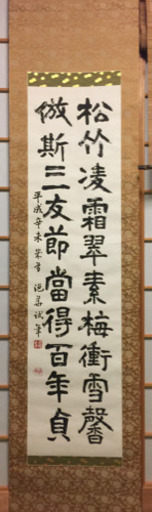 松竹凌霜翠素梅衝雪馨
倣斯三友節當得百年貞
平成辛未榮書
試筆